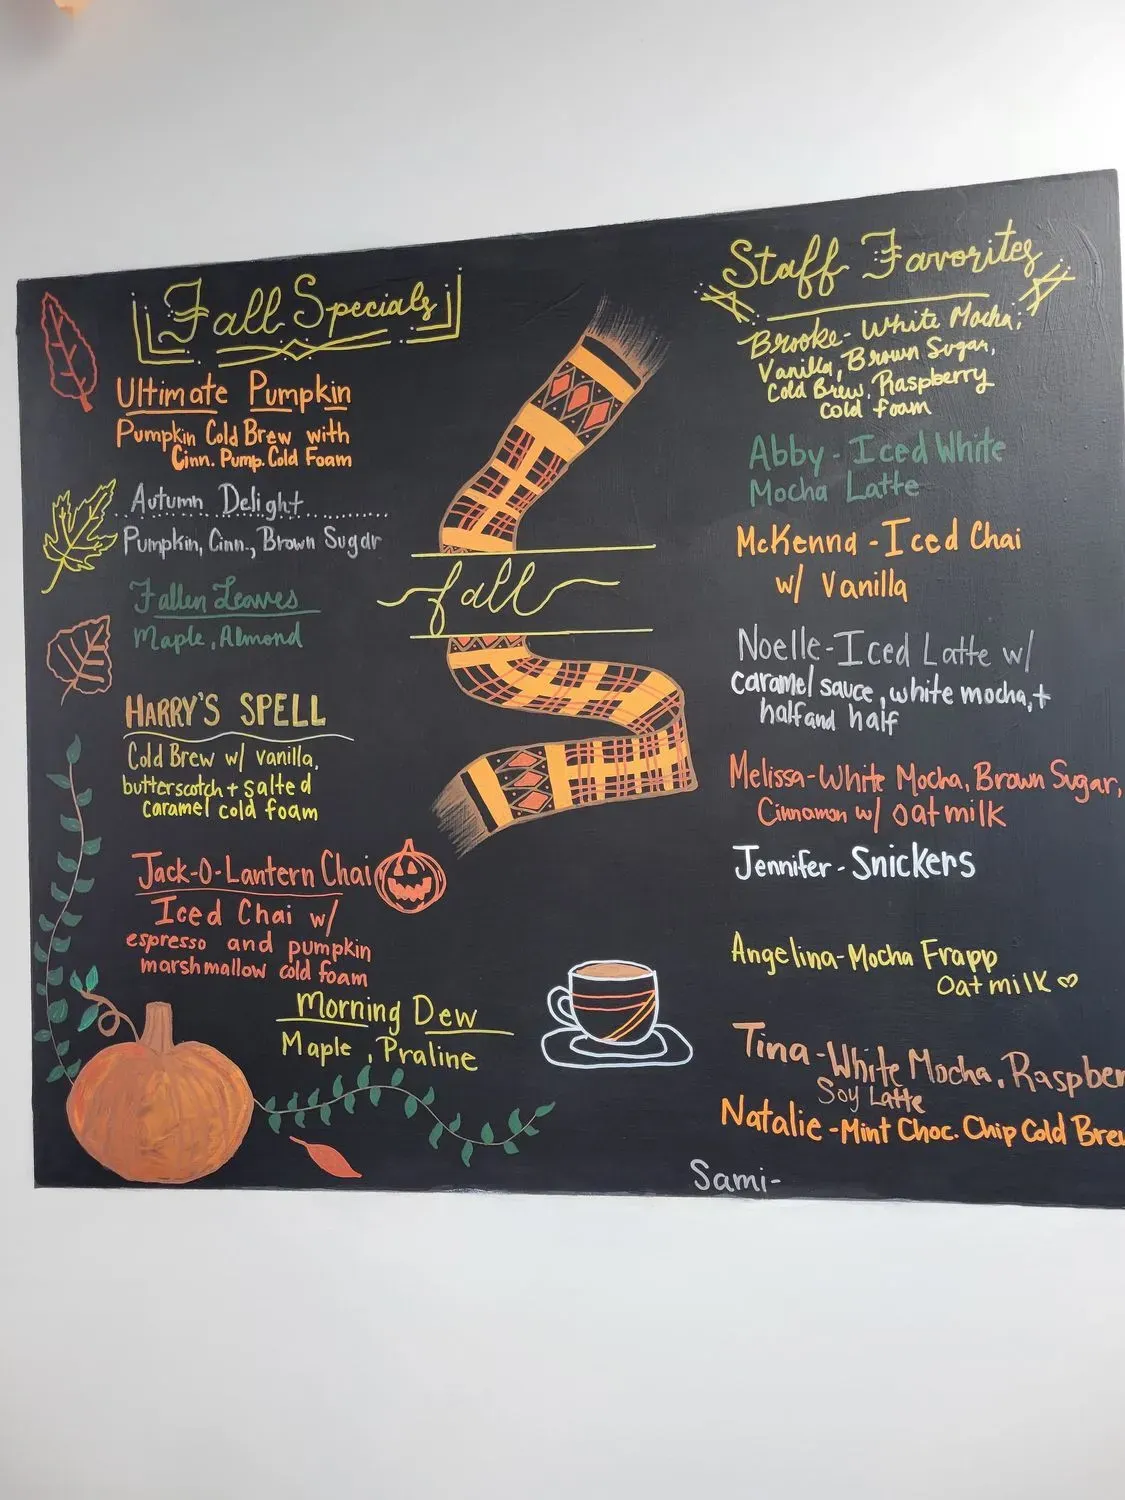 Fall Specials
Ultimate Pumpkin
Pumpkin Cold Brew with
Cinn. Pump. Cold Foam
Autumn Delight
Pumpkin, Cinn., Brown Sugar
Fallen Leaves
Maple, Almond
HARRY'S SPELL
Cold Brew w/ vanilla,
butterscotch + salted
caramel cold foam
Jack-O-Lantern Chai
Iced Chai w/
espresso and pumpkin
marshmallow cold foam
Morning Dew
Maple, Praline
fall
Staff Favorites
Brooke- White Mocha,
Vanilla, Brown Sugar,
Cold Brew, Raspberry
cold foam
Abby - Iced White
Mocha Latte
McKenna - Iced Chai
w/ Vanilla
Noelle - Iced Latte w/
caramel sauce, white mocha, +
half and half
Melissa - White Mocha, Brown Sugar,
Cinnamon w/ oatmilk
Jennifer - Snickers
Angelina - Mocha Frapp
Oatmilk ♡
Tina - White Mocha, Raspber
Soy Latte
Natalie - Mint Choc. Chip Cold Brew
Sami-